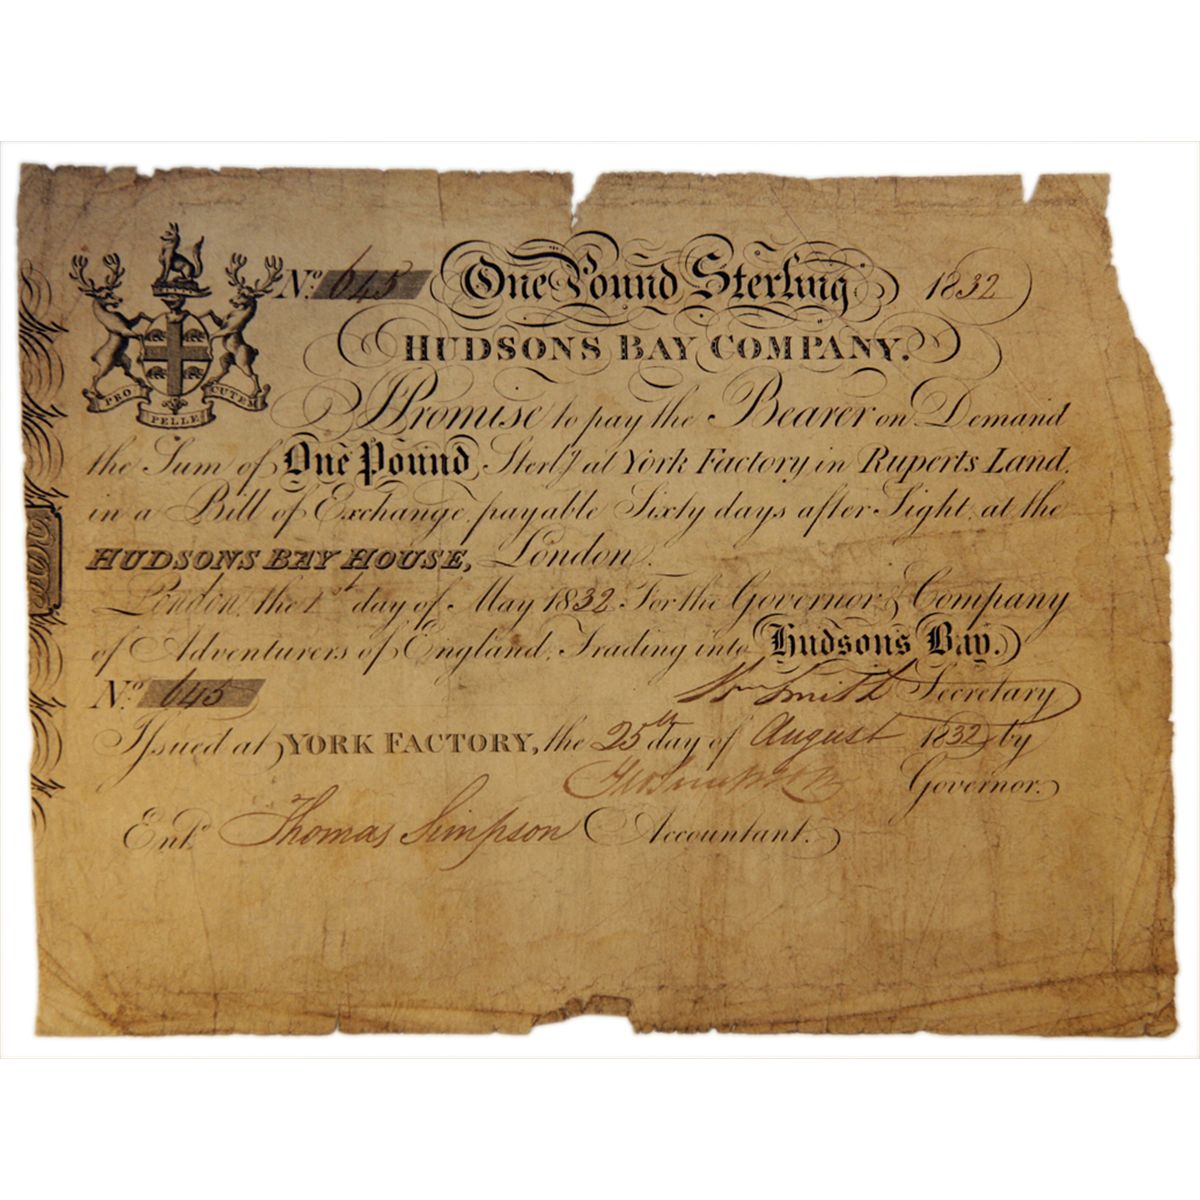 No. 645 One Pound Sterling 1832
HUDSONS BAY COMPANY.
PRO PELLE CUTEM
I Promise to pay the Bearer on Demand
the Sum of One Pound Sterlg at York Factory in Ruperts Land,
in a Bill of Exchange, payable Sixty days after Sight, at the
HUDSONS BAY HOUSE, London.
London, the 1st day of May 1832 For the Governor & Company
of Adventurers of England, Trading into Hudson's Bay.
No. 645 Wm Smith Secretary
Issued at YORK FACTORY, the 25th day of August 1832 by
Geo Simpson Governor.
Entd. Thomas Simpson Accountant.